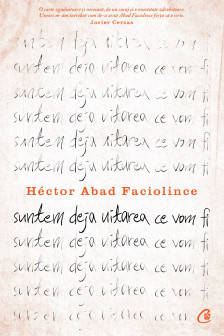 O carte zguduitoare și necesară, de un curaj și o onestitate devastatoare.
Uneori m-am întrebat cum de-a avut Abad Faciolince forța să o scrie.
Javier Cercas
suntem deja uitarea ce vom fi
suntem deja uitarea ce vom fi
suntem deja uitarea ce vom fi
suntem deja uitarea ce vom fi
suntem deja uitarea ce vom fi
suntem deja uitarea ce vom fi
suntem deja uitarea ce vom fi
Héctor Abad Faciolince
suntem deja uitarea ce vom fi
suntem deja uitarea ce vom fi
suntem deja uitarea ce vom fi
suntem deja uitarea ce vom fi
suntem deja uitarea ce vom fi